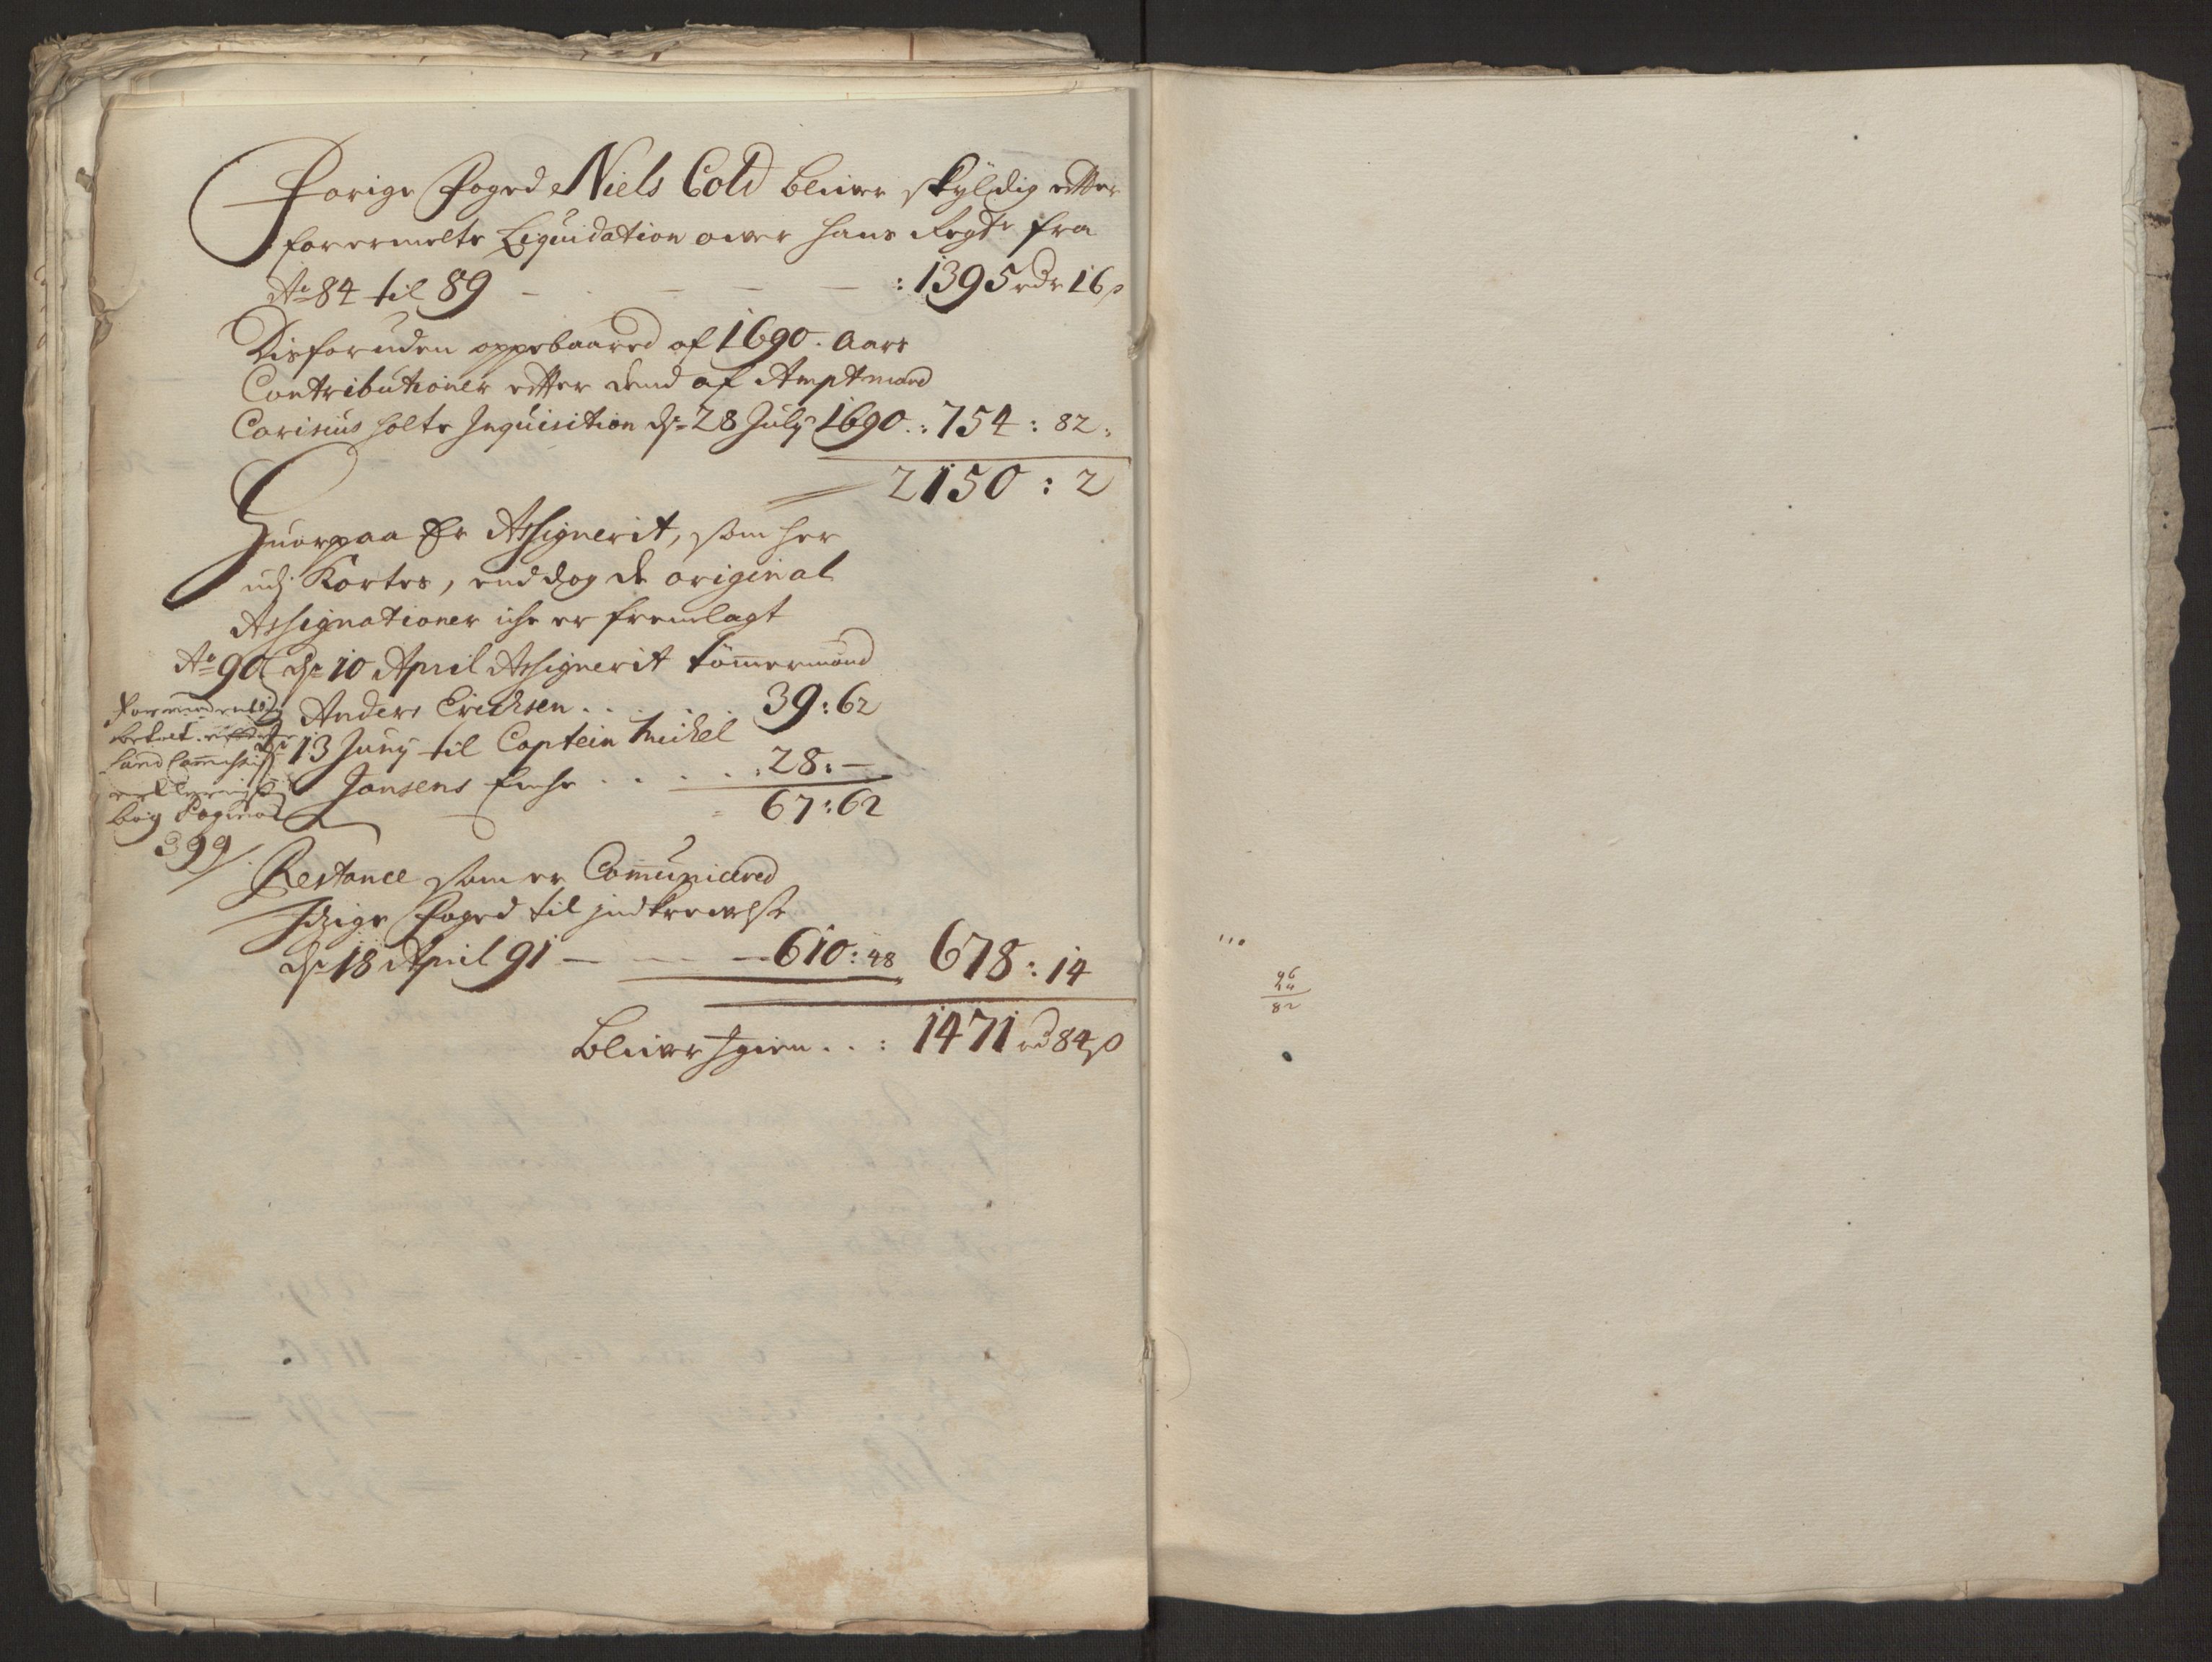 Forige Foged Niels Cold bliver skyldig efter
forermelte Liquidation over hans Regsk: fra
Ao 84 til 89 - - - - : 1395 rdr 16 s
Disforuden oppebaared af 1690. Aars
Contributioner efter dend af Amptmand
Carisius holte Inquisition d. 28 July 1690 .: 754 : 82 :
2150 : 2
Huorpaa Er Assignerit, som her
udj Kortes, enddog de original
Assignationer iche er fremlagt
Ao 90 d. 10 April Assignerit tömmermand
Anders Erichsen . . . . 39 : 62
d. 13 Juny til Captein Michel
Jansens Enche . . . . : 28 : -
67 : 62
betalt
Land Commissi
bog Pagina
399
Restance som er Communicered
Itzige Foged til jndkrevelse
d. 18 April 91 - - - 610 : 48 678 : 14
Bliver Igien . . : 1471 rd 84 s
96
82